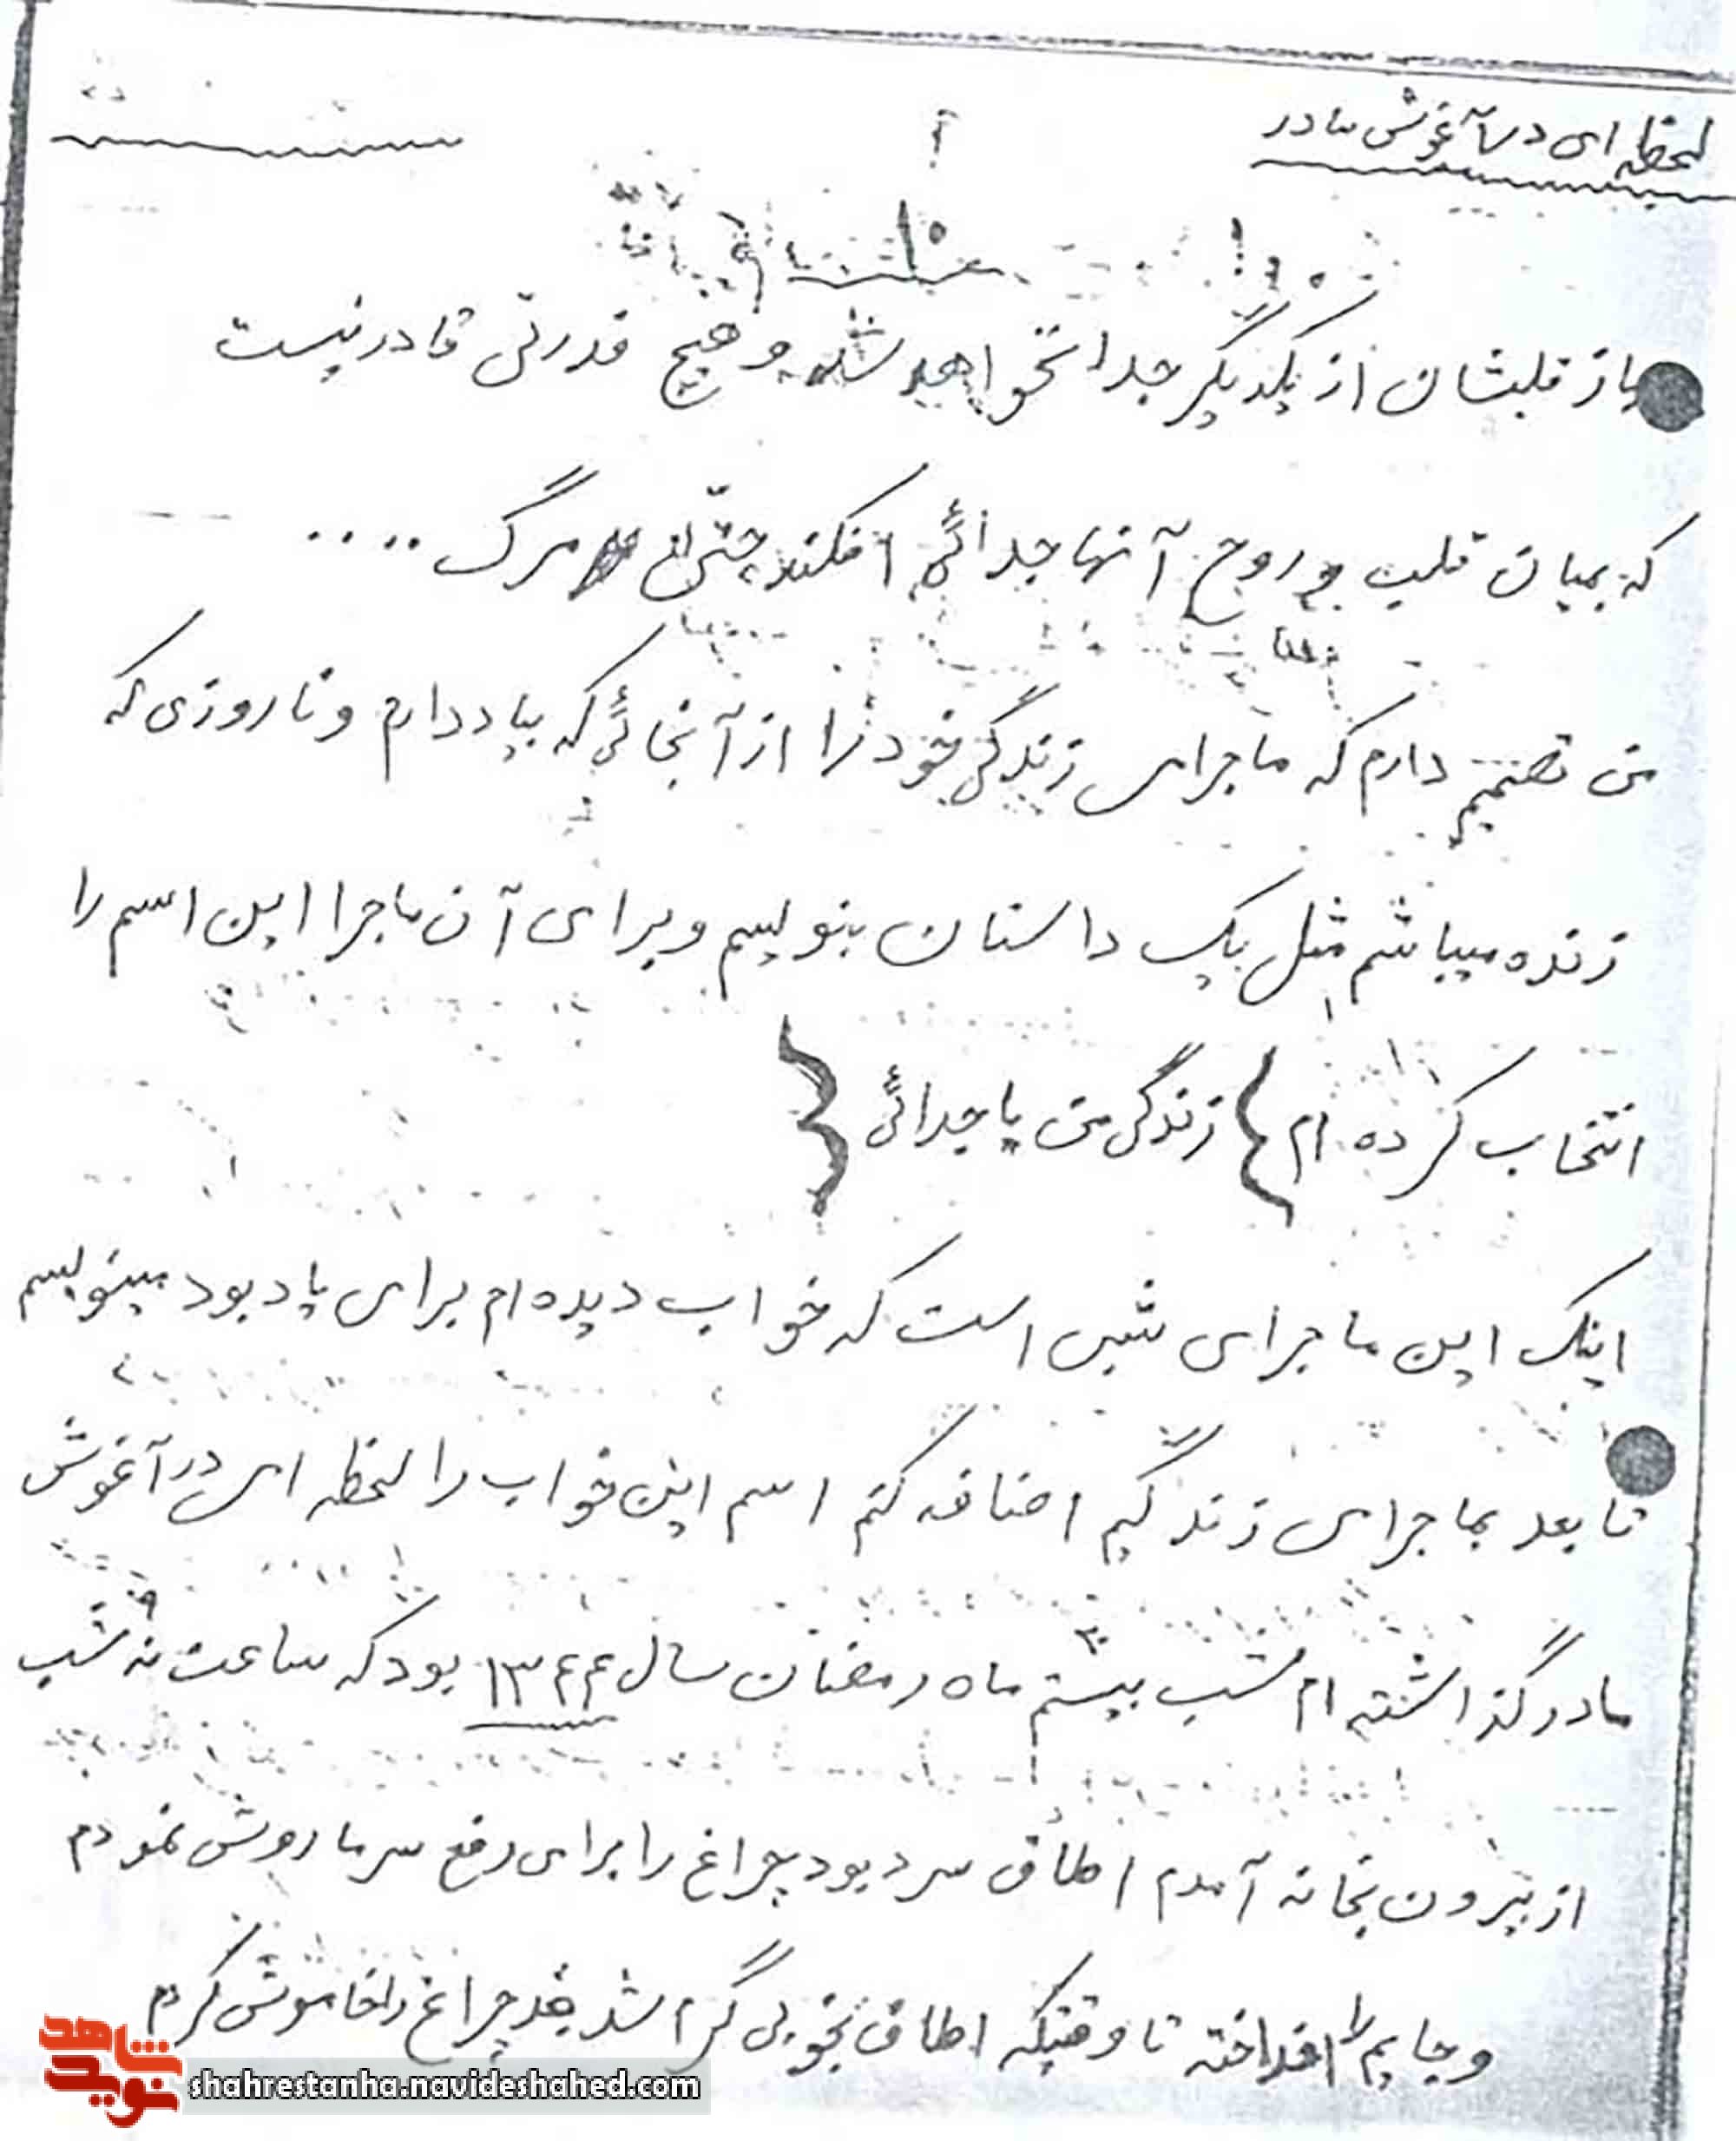 لحظه ای در آغوش مادر
باز قلبشان از یکدیگر جدا نخواهد شد و هیچ قدرتی قادر نیست
که بمیان قلب و روح آنها جدائی افکند حتی مرگ ....
من تصمیم دارم که ماجرای زندگی خود را از آنجائی که بیاد دارم و تا روزی که
زنده میباشم مثل یک داستان بنویسم و برای آن ماجرا این اسم را
انتخاب کرده ام } زندگی من یا جدائی {
اینک این ماجرای شبی است که خواب دیده ام برای یادبود مینویسم
تا بعد بماجرای زندگیم اضافه کنم اسم این خواب را لحظه ای در آغوش
مادر گذاشته ام شب بیستم ماه رمضان سال ۱۳۴۴ بود که ساعت نه شب
از بیرون بخانه آمدم اطاق سرد بود چراغ را برای رفع سرما روشن نمودم
و جایم را انداخته تا وقتیکه اطاق بخوبی گرم شد چراغ را خاموش کردم
شاهد
نوید
shahrestanha.navideshahed.com